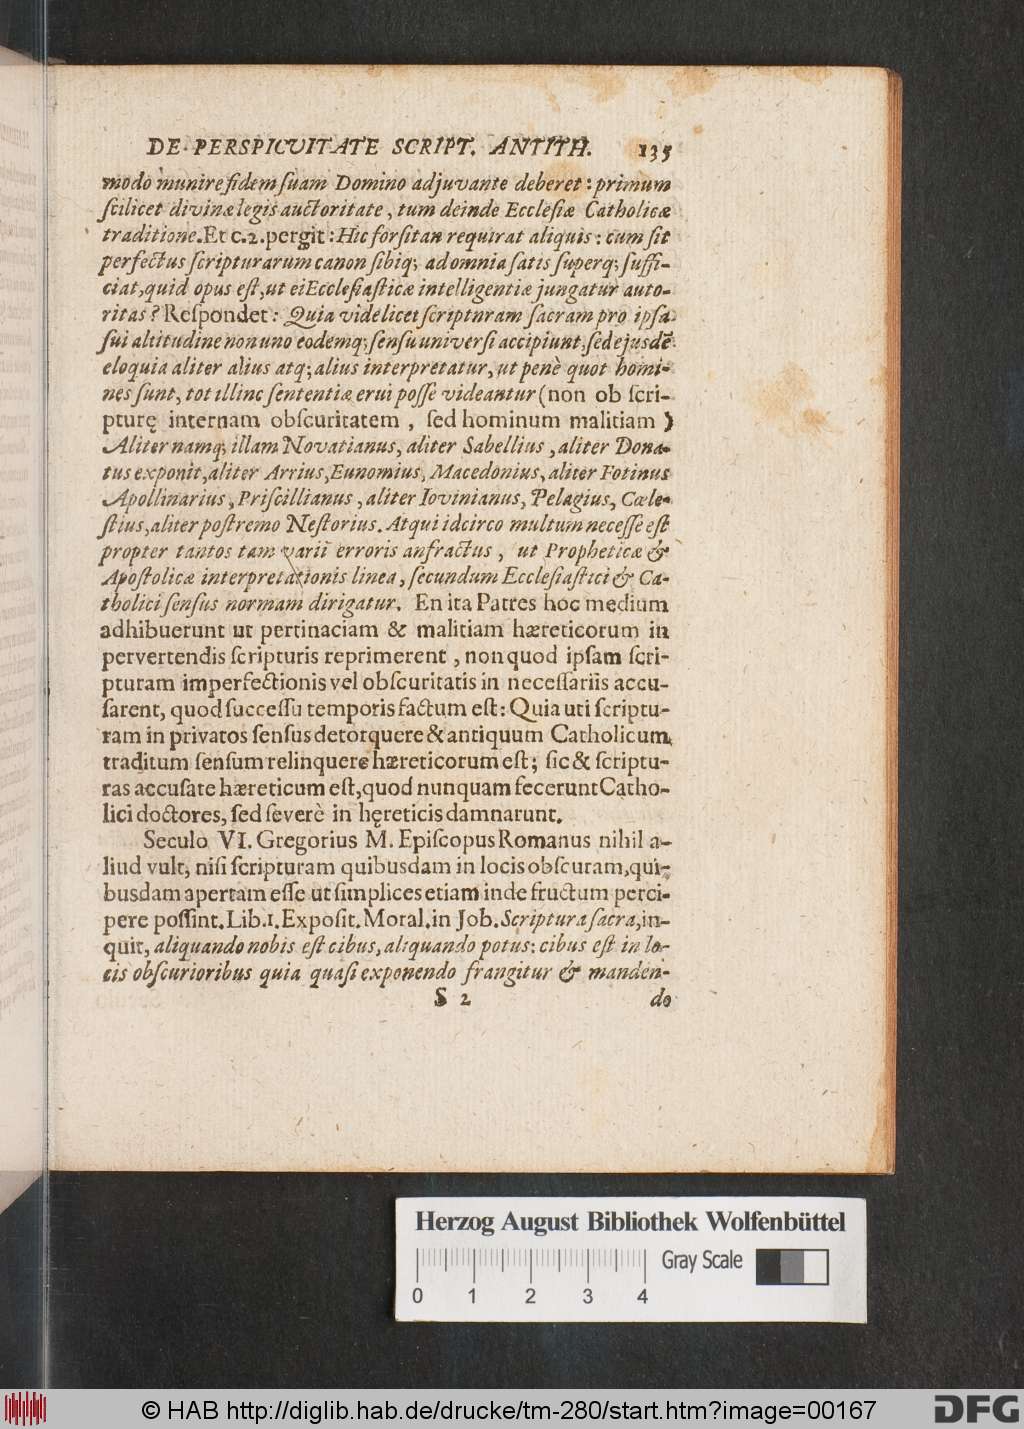 DE PERSPICVITATE SCRIPT. ANTITH. 135
modo munire fidem ſuam Domino adjuvante deberet: primum
ſcilicet divinæ legis auctoritate, tum deinde Eccleſiæ Catholicæ
traditione. Et c. 2. pergit: Hic forſitan requirat aliquis: cum ſit
perfectus ſcripturarum canon ſibiq; ad omnia ſatis ſuperq; ſuffi-
ciat, quid opus eſt, ut ei Eccleſiaſticæ intelligentiæ jungatur auto-
ritas? Reſpondet: Quia videlicet ſcripturam ſacram pro ipſa
ſui altitudine non uno eodemq; ſenſu univerſi accipiunt, ſed ejusdē
eloquia aliter alius atq; alius interpretatur, ut penè quot homi-
nes ſunt, tot illinc ſententiæ erui poſſe videantur (non ob ſcri-
pturę internam obſcuritatem, ſed hominum malitiam)
Aliter namq; illam Novatianus, aliter Sabellius, aliter Dona-
tus exponit, aliter Arrius, Eunomius, Macedonius, aliter Fotinus
Apollinarius, Priſcillianus, aliter Iovinianus, Pelagius, Cæle-
ſtius, aliter poſtremo Neſtorius. Atqui idcirco multum neceſſe eſt
propter tantos tam varii erroris anfractus, ut Propheticæ &
Apoſtolicæ interpretationis linea, ſecundum Eccleſiaſtici & Ca-
tholici ſenſus normam dirigatur. En ita Patres hoc medium
adhibuerunt ut pertinaciam & malitiam hæreticorum in
pervertendis ſcripturis reprimerent, non quod ipſam ſcri-
pturam imperfectionis vel obſcuritatis in neceſſariis accu-
ſarent, quod ſucceſſu temporis factum eſt: Quia uti ſcriptu-
ram in privatos ſenſus detorquere & antiquum Catholicum
traditum ſenſum relinquere hæreticorum eſt; ſic & ſcriptu-
ras accuſate hæreticum eſt, quod nunquam fecerunt Catho-
lici doctores, ſed ſeverè in hęreticis damnarunt.
Seculo VI. Gregorius M. Epiſcopus Romanus nihil a-
liud vult, niſi ſcripturam quibusdam in locis obſcuram, qui-
busdam apertam eſſe ut ſimplices etiam inde fructum perci-
pere poſſint. Lib. 1. Expoſit. Moral. in Job. Scriptura ſacra, in-
quit, aliquando nobis eſt cibus, aliquando potus: cibus eſt in lo-
cis obſcurioribus quia quaſi exponendo frangitur & manden-
S 2 do
Herzog August Bibliothek Wolfenbüttel
0 1 2 3 4 Gray Scale
© HAB http://diglib.hab.de/drucke/tm-280/start.htm?image=00167 DFG